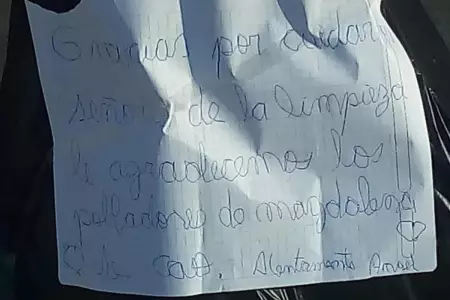 Gracias por cuidar
señor de la limpieza
le agradecemos los
peliadores de magdalena
cao. Atentamente Angel